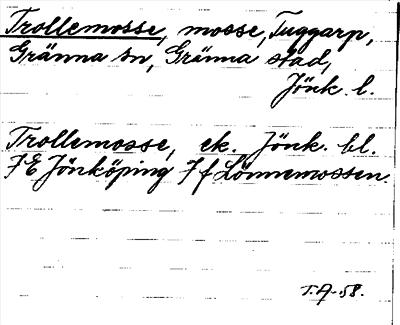 Trollemosse, mosse, Tuggarp,
Gränna sn, Gränna stad,
Jönk. l.
Trollemosse, ek. Jönk. bl.
7E Jönköping 7f Lönnemossen.
T.A-58.